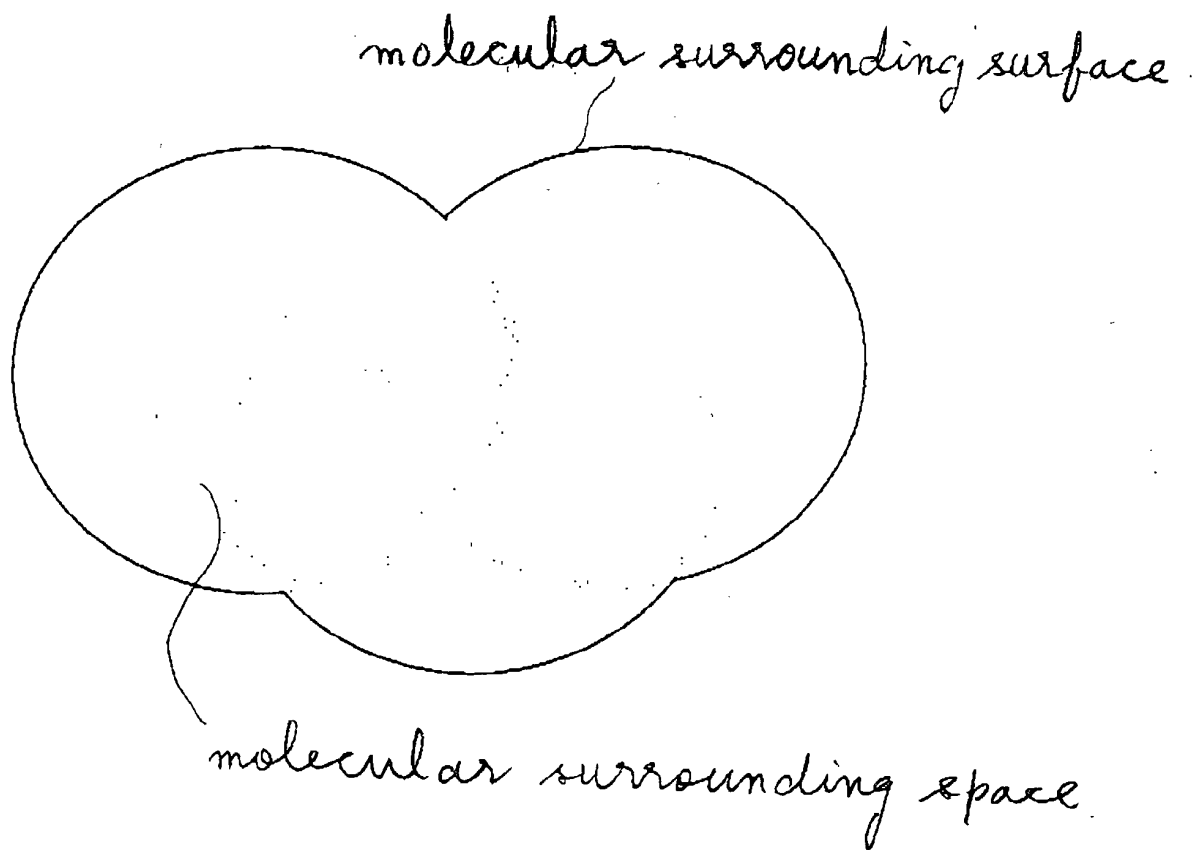 molecular surrounding surface
molecular surrounding space